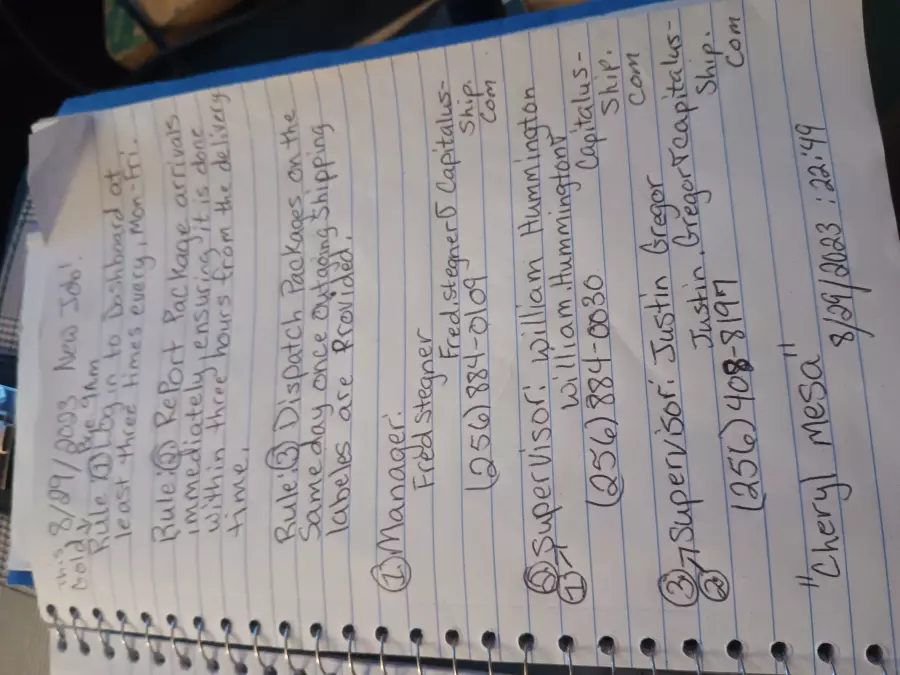 This 8/29/2003 New Job!
Gold & Blue 9Am
Rule ① Log in to Dashboard at
least three times every, Mon-Fri.
Rule:② Report Package arrivals
immediately ensuring it is done
within three hours from the delivery
time.
Rule:③ Dispatch Packages on the
Same day once outgoing Shipping
labeles are Provided.
① Manager:
Fred stegner
Fred.stegner@ Capitalus-
Ship.
Com
(256) 884-0109
② Supervisor: William Hummington
①→ William.Hummington@
Capitalus-
Ship.
Com
(256) 884-0030
③→ Supervisor: Justin Gregor
② Justin.Gregor@capitalus-
Ship.
Com
(256) 408-8197
"Cheryl Mesa"
8/29/2023 :22:49